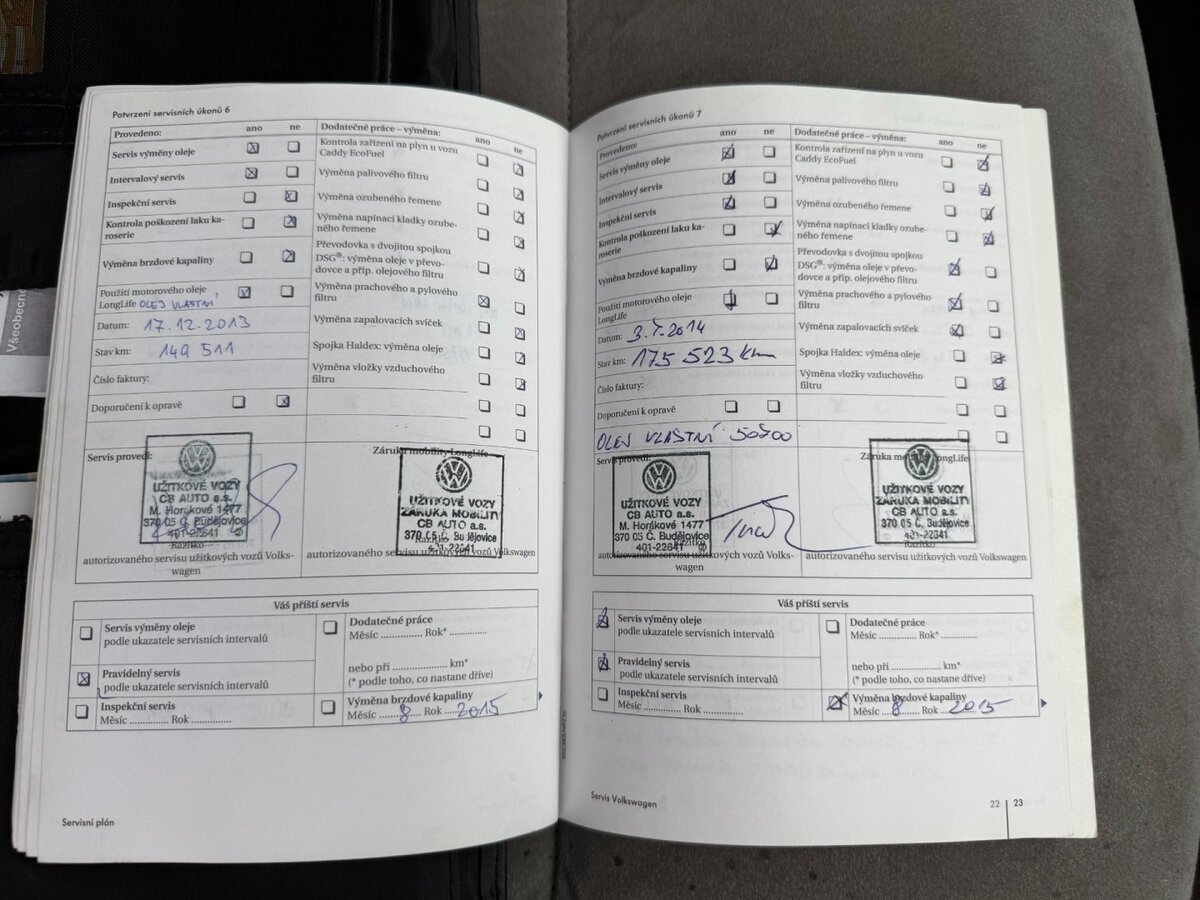 Všeobecné
Potvrzení servisních úkonů 6
Provedeno: ano ne
Servis výměny oleje
Intervalový servis
Inspekční servis
Kontrola poškození laku ka-
roserie
Výměna brzdové kapaliny
Použití motorového oleje
LongLife OLEJ VLASTNÍ
Datum: 17.12.2013
Stav km: 149 511
Číslo faktury:
Doporučení k opravě
Dodatečné práce – výměna: ano ne
Kontrola zařízení na plyn u vozu
Caddy EcoFuel
Výměna palivového filtru
Výměna ozubeného řemene
Výměna napínací kladky ozube-
ného řemene
Převodovka s dvojitou spojkou
DSG®: výměna oleje v převo-
dovce a příp. olejového filtru
Výměna prachového a pylového
filtru
Výměna zapalovacích svíček
Spojka Haldex: výměna oleje
Výměna vložky vzduchového
filtru
Servis provedl:
UŽITKOVÉ VOZY
CB AUTO a.s.
M. Horákové 1477
370 05 Č. Budějovice
401-22641
Razítko
autorizovaného servisu užitkových vozů Volks-
wagen
Záruka mobility LongLife
UŽITKOVÉ VOZY
ZÁRUKA MOBILITY
CB AUTO a.s.
370 05 Č. Budějovice
401-22641
autorizovaného servisu užitkových vozů Volkswagen
Váš příští servis
Servis výměny oleje
podle ukazatele servisních intervalů
Pravidelný servis
podle ukazatele servisních intervalů
Inspekční servis
Měsíc .............. Rok ..............
Dodatečné práce
Měsíc .............. Rok* ..............
nebo při .................... km*
(* podle toho, co nastane dříve)
Výměna brzdové kapaliny
Měsíc 8 Rok 2015
Servisní plán
Potvrzení servisních úkonů 7
Provedeno: ano ne
Servis výměny oleje
Intervalový servis
Inspekční servis
Kontrola poškození laku ka-
roserie
Výměna brzdové kapaliny
Použití motorového oleje
LongLife
Datum:
Stav km: 175 523 km
Číslo faktury:
Doporučení k opravě
OLEJ VLASTNÍ
Dodatečné práce – výměna: ano ne
Kontrola zařízení na plyn u vozu
Caddy EcoFuel
Výměna palivového filtru
Výměna ozubeného řemene
Výměna napínací kladky ozube-
ného řemene
Převodovka s dvojitou spojkou
DSG®: výměna oleje v převo-
dovce a příp. olejového filtru
Výměna prachového a pylového
filtru
Výměna zapalovacích svíček
Spojka Haldex: výměna oleje
Výměna vložky vzduchového
filtru
Servis provedl:
UŽITKOVÉ VOZY
CB AUTO a.s.
M. Horákové 1477
370 05 Č. Budějovice
401-22641
Razítko
autorizovaného servisu užitkových vozů Volks-
wagen
Záruka mobility LongLife
UŽITKOVÉ VOZY
ZÁRUKA MOBILITY
CB AUTO a.s.
370 05 Č. Budějovice
401-22641
Razítko
autorizovaného servisu užitkových vozů Volkswagen
Váš příští servis
Servis výměny oleje
podle ukazatele servisních intervalů
Pravidelný servis
podle ukazatele servisních intervalů
Inspekční servis
Měsíc .............. Rok ..............
Dodatečné práce
Měsíc .............. Rok* ..............
nebo při .................... km*
(* podle toho, co nastane dříve)
Výměna brzdové kapaliny
Měsíc 8 Rok 2015
Servis Volkswagen
22 | 23